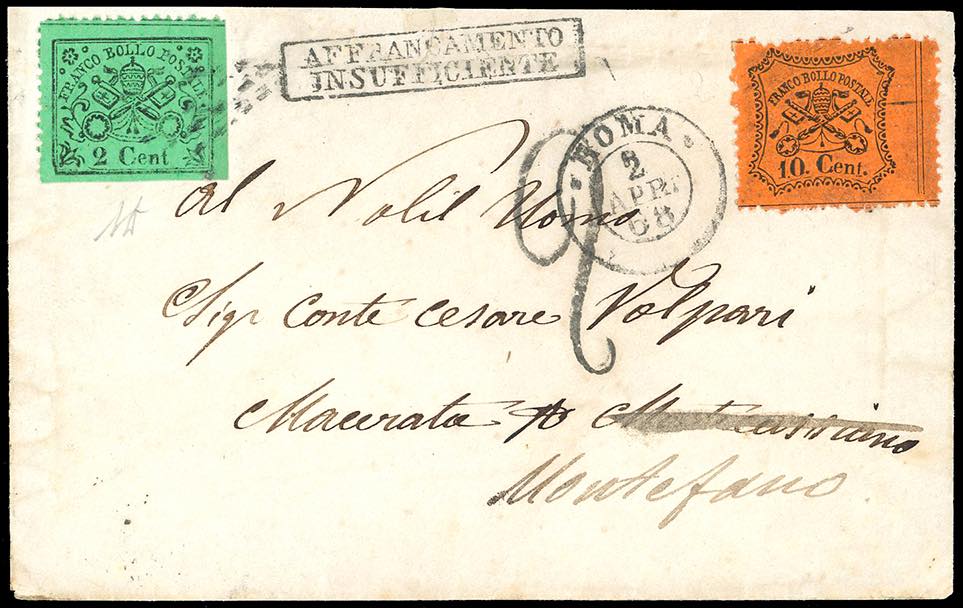 FRANCO BOLLO POSTALE
2 Cent
AFFRANCAMENTO
INSUFFICIENTE
FRANCO BOLLO POSTALE
10. Cent.
ROMA
2
APR
68
Al Nobil Uomo
Sigr Conte Cesare Volpari
Macerata
Montefano